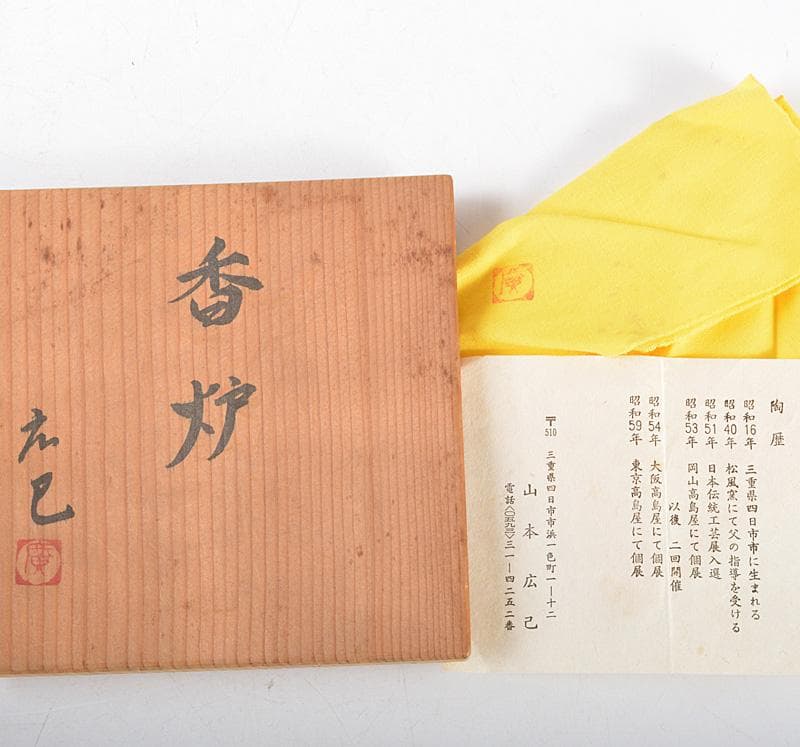 香炉
広己
廣
陶歴
昭和16年 三重県四日市市に生まれる
昭和40年 松風窯にて父の指導を受ける
昭和51年 日本伝統工芸展入選
昭和53年 岡山高島屋にて個展
以後 二回開催
昭和54年 大阪高島屋にて個展
昭和59年 東京高島屋にて個展
〒510 三重県四日市市浜一色町一ー十二
山本広己
電話〈〇五九三〉三一ー四二五二番